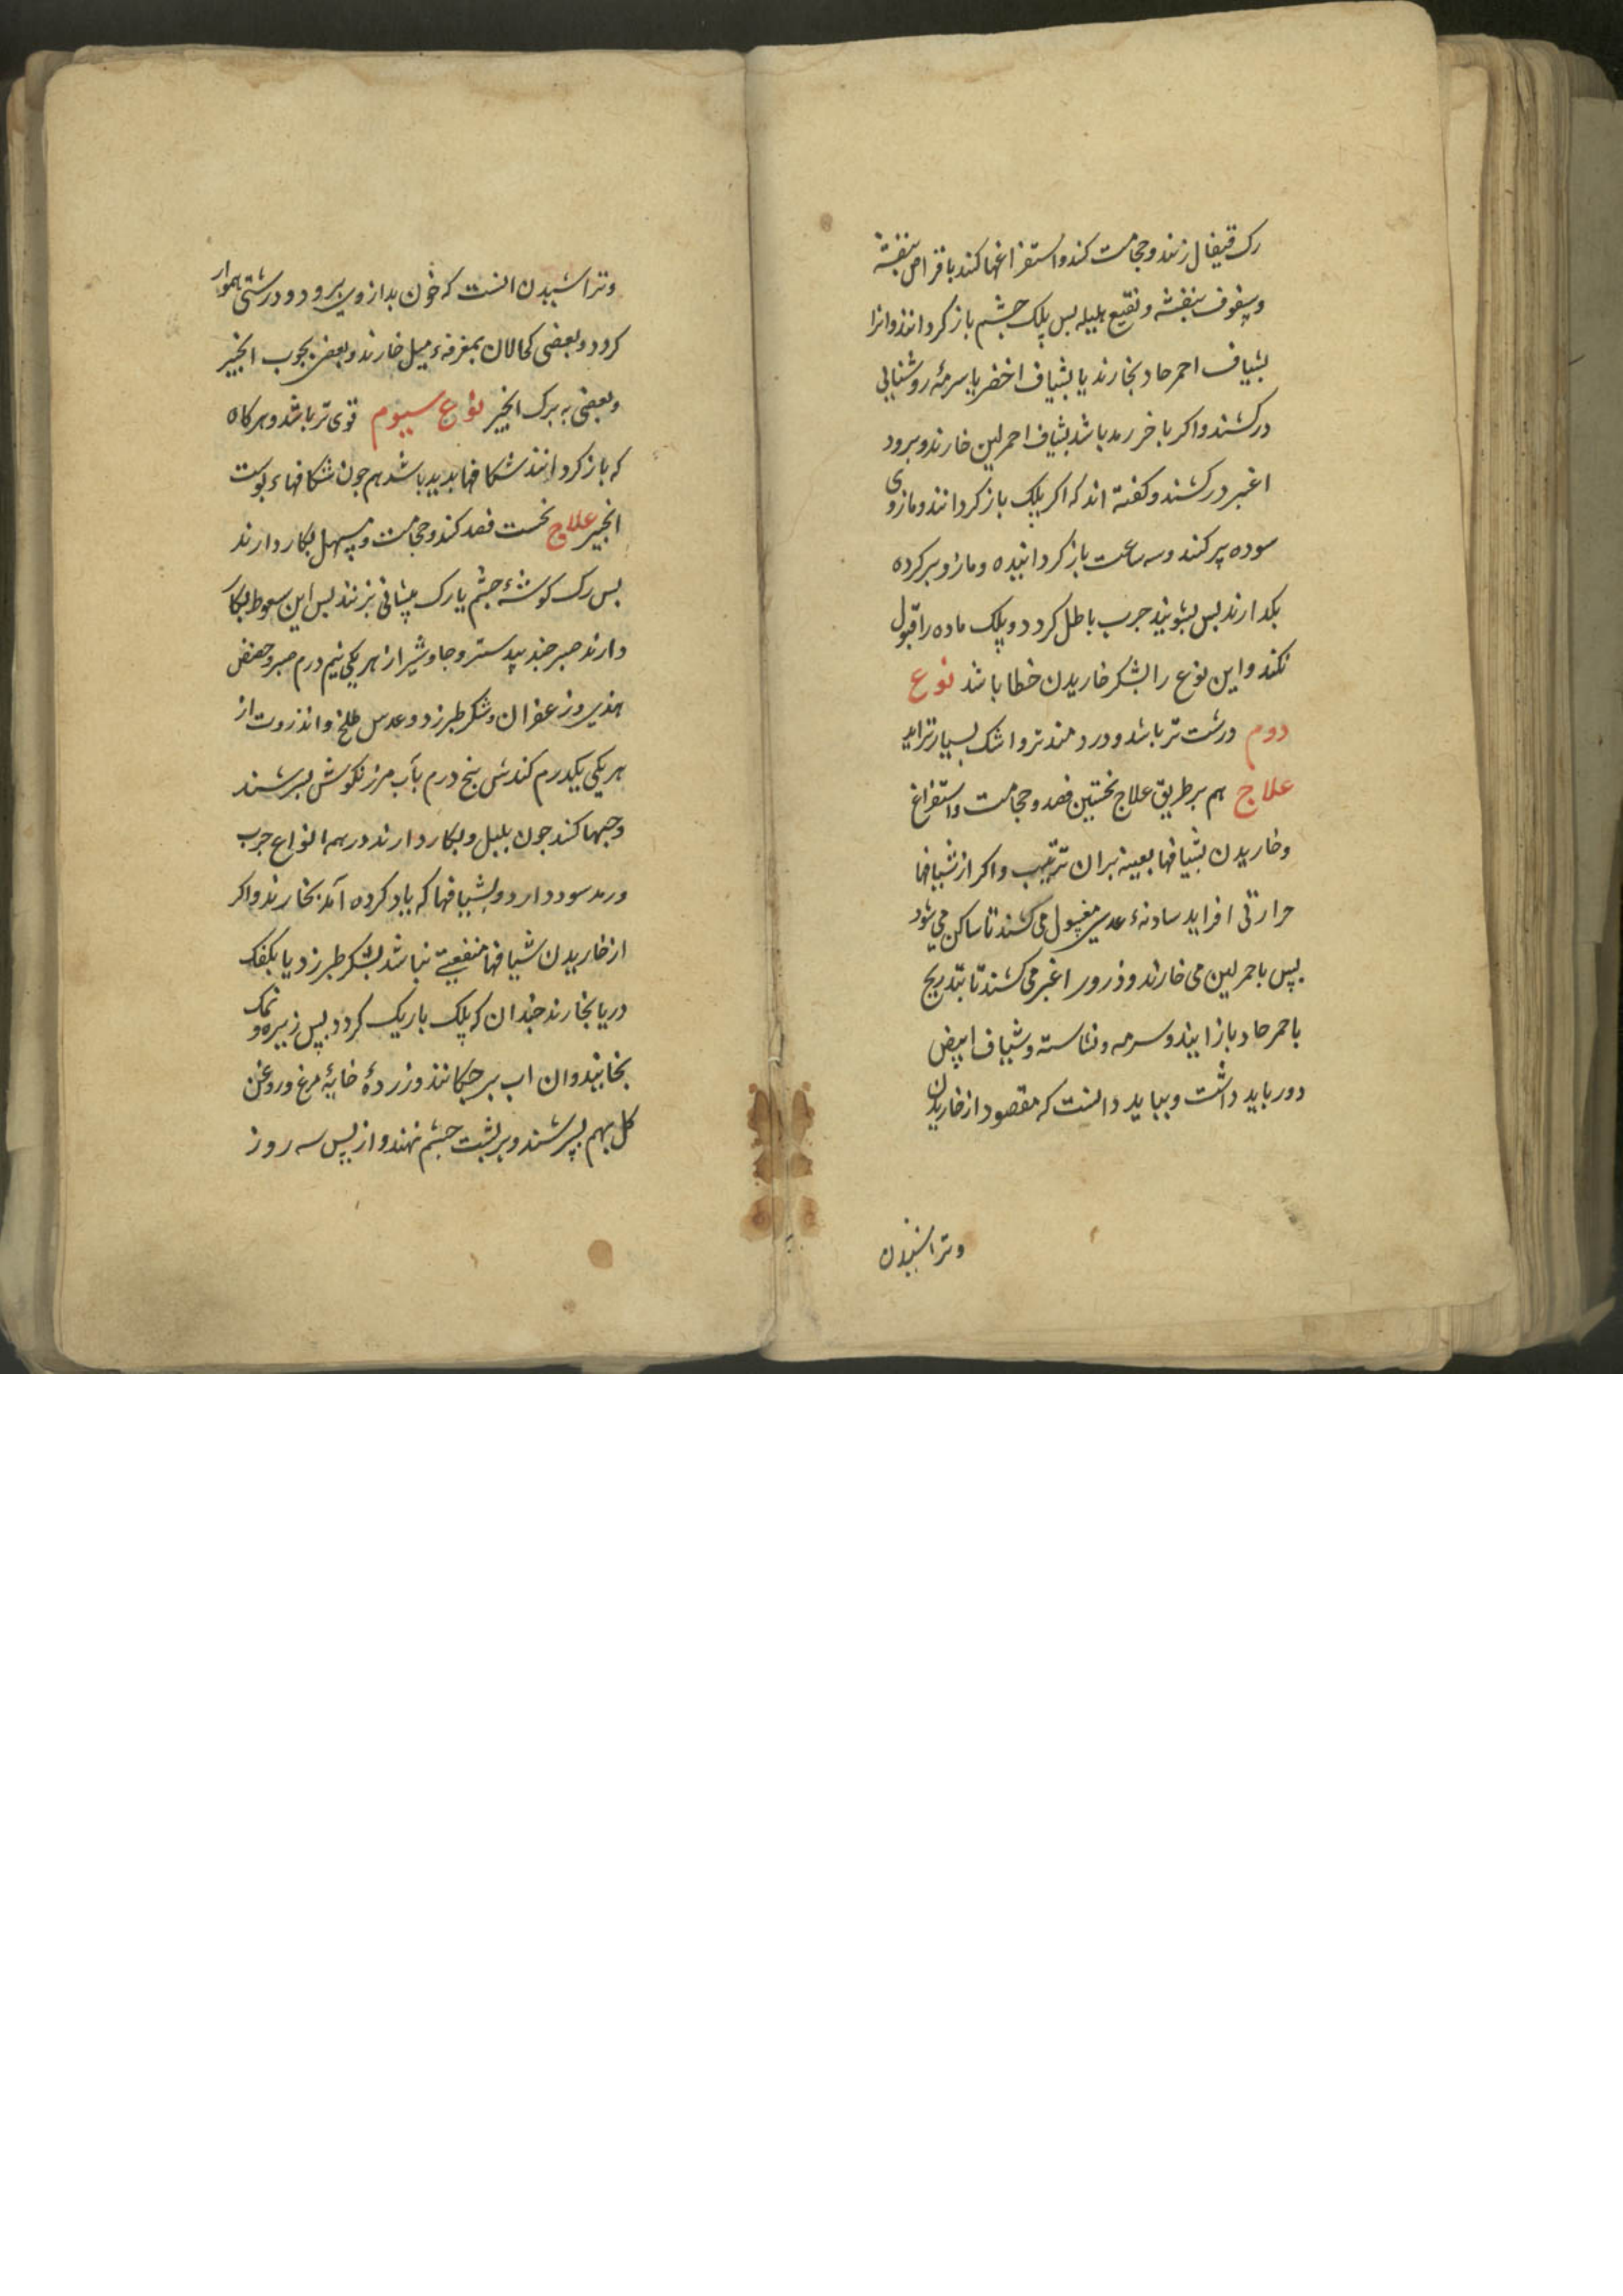 رک قیفال زنند و حجامت کنند و استفراغها کنند باقراص بنفشه
و سفوف بنفشه و نقیع هلیله بس پلک چشم باز کردانند وانرا
بشیاف احمر حاد بخارند یا بشیاف اخضر یا سرمهٔ روشنایی
درکشند واکر باخر رمد باشد بشیاف احمر لین خارند وبرود
اغبر درکشند وکفته اند که اکر پلک باز کردانند ومازوی
سوده پر کنند وسه ساعت باز کردانیده ومازو برکرده
بکدارند بس بشویند جرب باطل کردد و پلک ماده را قبول
نکند و این نوع را بشکر خاریدن خطا باشد نوع
دوم درشت تر باشد ودردمندتر واشک بسیارتر اید
علاج هم بر طریق علاج نخستین فصد وحجامت واستفراغ
وخاریدن بشیافها بعینه بران ترتیب واکر از شیافها
حرارتی افزاید سادنهٔ عدسی مغسول می کشند تا ساکن می شود
بس باحمر لین می خارند وذرور اغبر می کشند تا بتدریج
باحمر حاد باز ایند وسرمه ونشاسته وشیاف ابیض
دور باید داشت وبباید دانست که مقصود از خاریدن
وتراشیدن
وتراشیدن انست که خون بد ازوی برود ودرشتی هموار
کردد وبعضی کحالان بمغرفهٔ میل خارند وبعضی بچوب انجیر
وبعضی به برک انجیر نوع سیوم قوی تر باشد وهرکاه
که باز کردانند شکافها بدید باشد هم جون شکافهاء پوست
انجیر علاج نخست فصد کنند وحجامت ومسهل بکار دارند
بس رک کوشهٔ چشم یا رک پیشانی بزنند بس این سعوط بکار
دارند صبر جندبیدستر وجاوشیر از هر یکی نیم درم صبر وحضض
هندی وزعفران وشکر طبرزد وعدس طلخ وانذروت از
هر یکی یکدرم کندش پنج درم بآب مرزنکوش بسرشند
وحبها کنند جون بلبل وبکار دارند در هم انواع جرب
ورمد سود دارد وبشیافها که یاد کرده آمد بخارند واکر
از خاریدن شیافها منفعتی نباشد بشکر طبرزد یا بکفک
دریا بخارند جندان که پلک باریک کردد بس زیره ونمک
بخایند وان اب بر جکانند وزردهٔ خایهٔ مرغ وروغن
کل بهم بسرشند وبر پشت چشم نهند واز پس سه روز